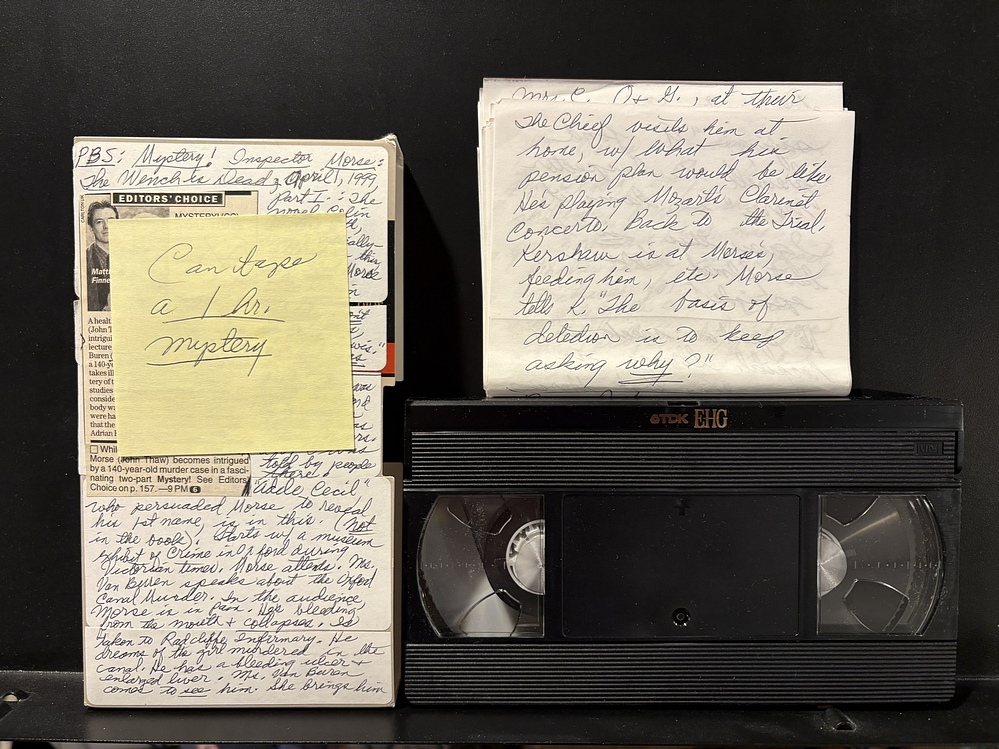 PBS: Mystery! Inspector Morse:
The Wench is Dead, April, 1999,
Part I. : The
novel Colin
EDITORS' CHOICE
CARLTON UK
MYSTERY!
Matt
Finne
A healt
(John T
intrigui
lecture
Buren (
a 140-y
takes ill
tery of t
studies
conside
body wa
were ha
that the
Adrian
Whil
Morse (John Thaw) becomes intrigued
by a 140-year-old murder case in a fasci-
nating two-part Mystery! See Editors'
Choice on p. 157. —9 PM 6
ally-
this,
Morse
in
Can tape
a 1 hr.
mystery
told by people
there.
"Adele Cecil"
who persuaded Morse to reveal
his 1st name, is in this. (Not
in the book). Starts w/ a museum
exhibit of Crime in Oxford during
Victorian times. Morse attends. Ms.
Van Buren speaks about the Oxford
Canal Murder. In the audience
Morse is in pain. He's bleeding
from the mouth + collapses. Is
taken to Radcliffe Infirmary. He
dreams of the girl murdered in the
canal. He has a bleeding ulcer +
enlarged liver. Ms. Van Buren
comes to see him. She brings him
Mrs. C. O + G., at their
The Chief visits him at
home, w/ what his
pension plan would be like.
He's playing Mozart's Clarinet
Concerto. Back to the Trial.
Kershaw is at Morse's,
feeding him, etc. Morse
tells K. "The basis of
detection is to keep
asking why?"
TDK EHG
VHS